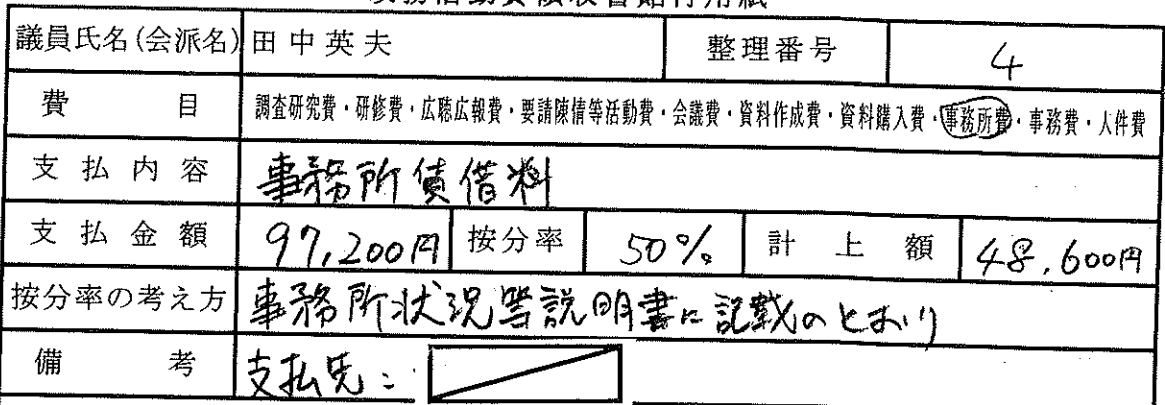 政務活動費領収書貼付用紙
議員氏名(会派名) 田中英夫 整理番号 4
費目 調査研究費・研修費・広聴広報費・要請陳情等活動費・会議費・資料作成費・資料購入費・事務所費・事務費・人件費
支払内容 事務所賃借料
支払金額 97,200円 按分率 50% 計上額 48,600円
按分率の考え方 事務所状況等説明書に記載のとおり
備考 支払先: